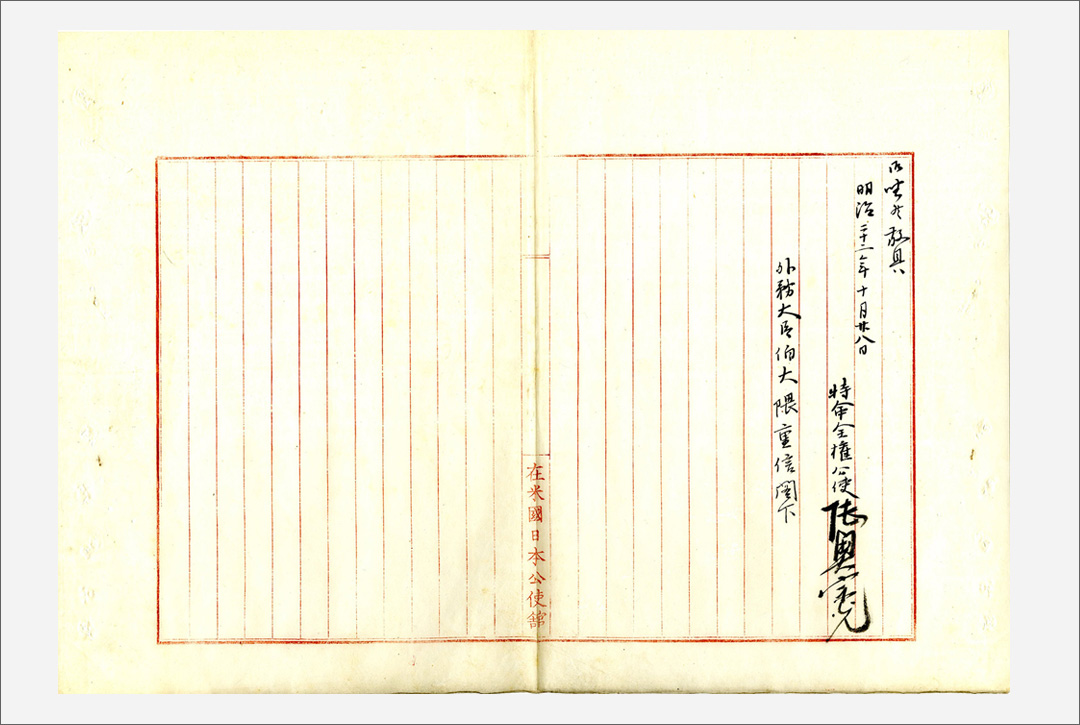 敬具
明治二十二年十月廿八日
特命全權公使陸奥宗光
外務大臣伯大隈重信閣下
在米國日本公使舘